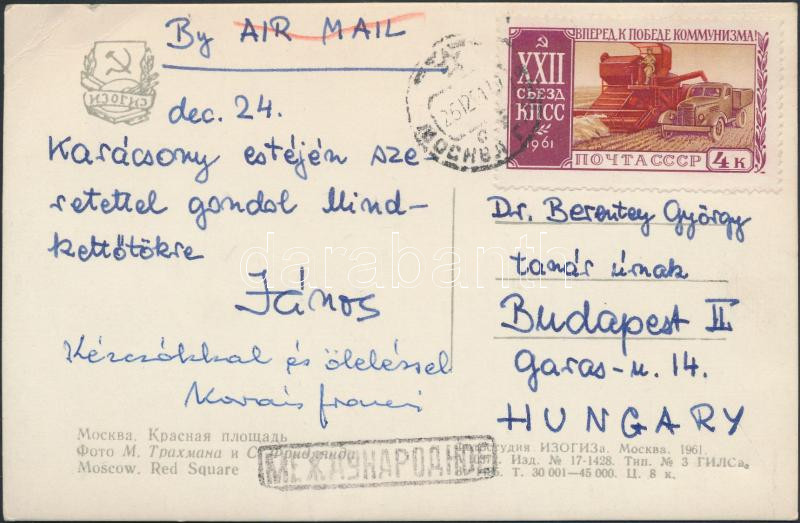 By AIR MAIL
ИЗОГИЗ
dec. 24.
Karácsony estéjén sze
retettel gondol Mind-
kettőtökre
János
Kézcsókkal és öleléssel
Москва. Красная площадь
Фото М. Трахмана и С. Фридлянда
Moscow. Red Square
МЕЖДУНАРОДНОЕ
ВПЕРЕД, К ПОБЕДЕ КОММУНИЗМА!
XXII
СЪЕЗД
КПСС
1961
ПОЧТА СССР
4 к
Dr. Berentey György
tanár úrnak
Budapest II
Garas-u. 14.
HUNGARY
ИЗОГИЗа. Москва. 1961.
Изд. № 17-1428. Тип. № 3 ГИЛСа.
Т. 30 001—45 000. Ц. 8 к.
darabanth